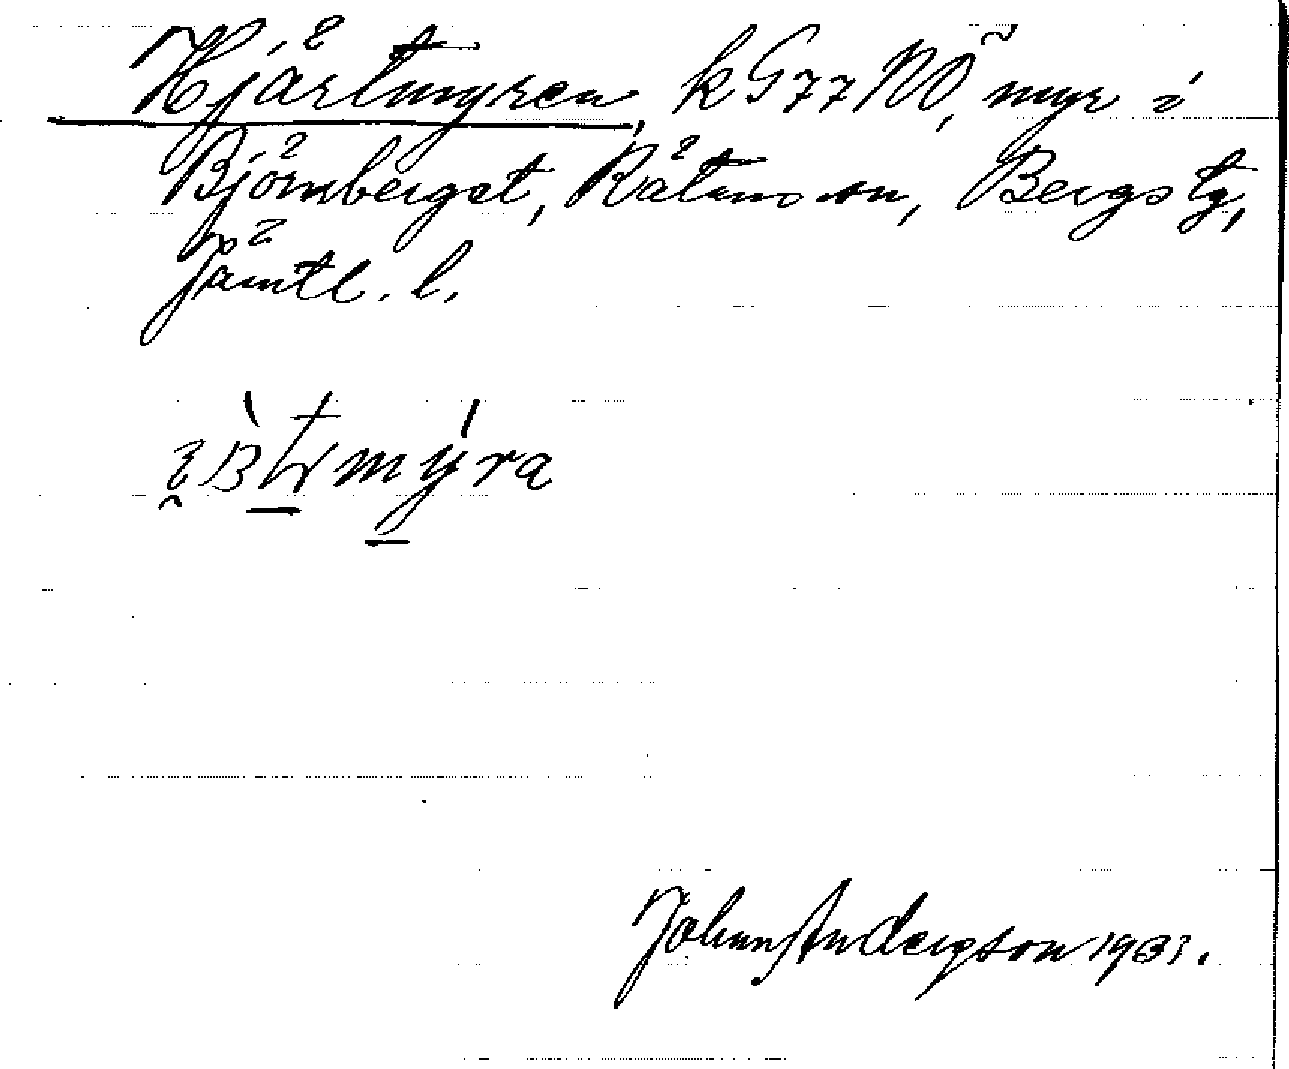 Hjärtmyren, k G77 NÖ, myr i
Björnberget, Rätans sn, Bergs tg,
Jämtl. l.
mýra
Johan Andersson 1931.